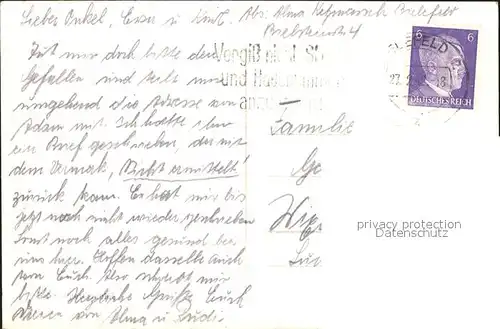 Lieber Onkel, Erna u. Kind. Abs. Alma Bielefeld
4
Tut mir doch bitte den
Gefallen und teilt mir
umgehend die Adresse von
Adam mit. Ich hatte ihm
ein Brief geschrieben, der mit
dem Vermerk, Nicht ermittelt
zurück kam. Er hat mir bis
jetzt noch nicht wieder geschrieben
Sonst noch alles gesund bei
uns hier. Hoffen dasselbe auch
von Euch. Also schreibt mir
bitte. Herzliche Grüße Euch
von Alma u.
Vergiß nicht
und Hausnummer
BIELEFELD
6 6
DEUTSCHES REICH
Familie
privacy protection
Datenschutz